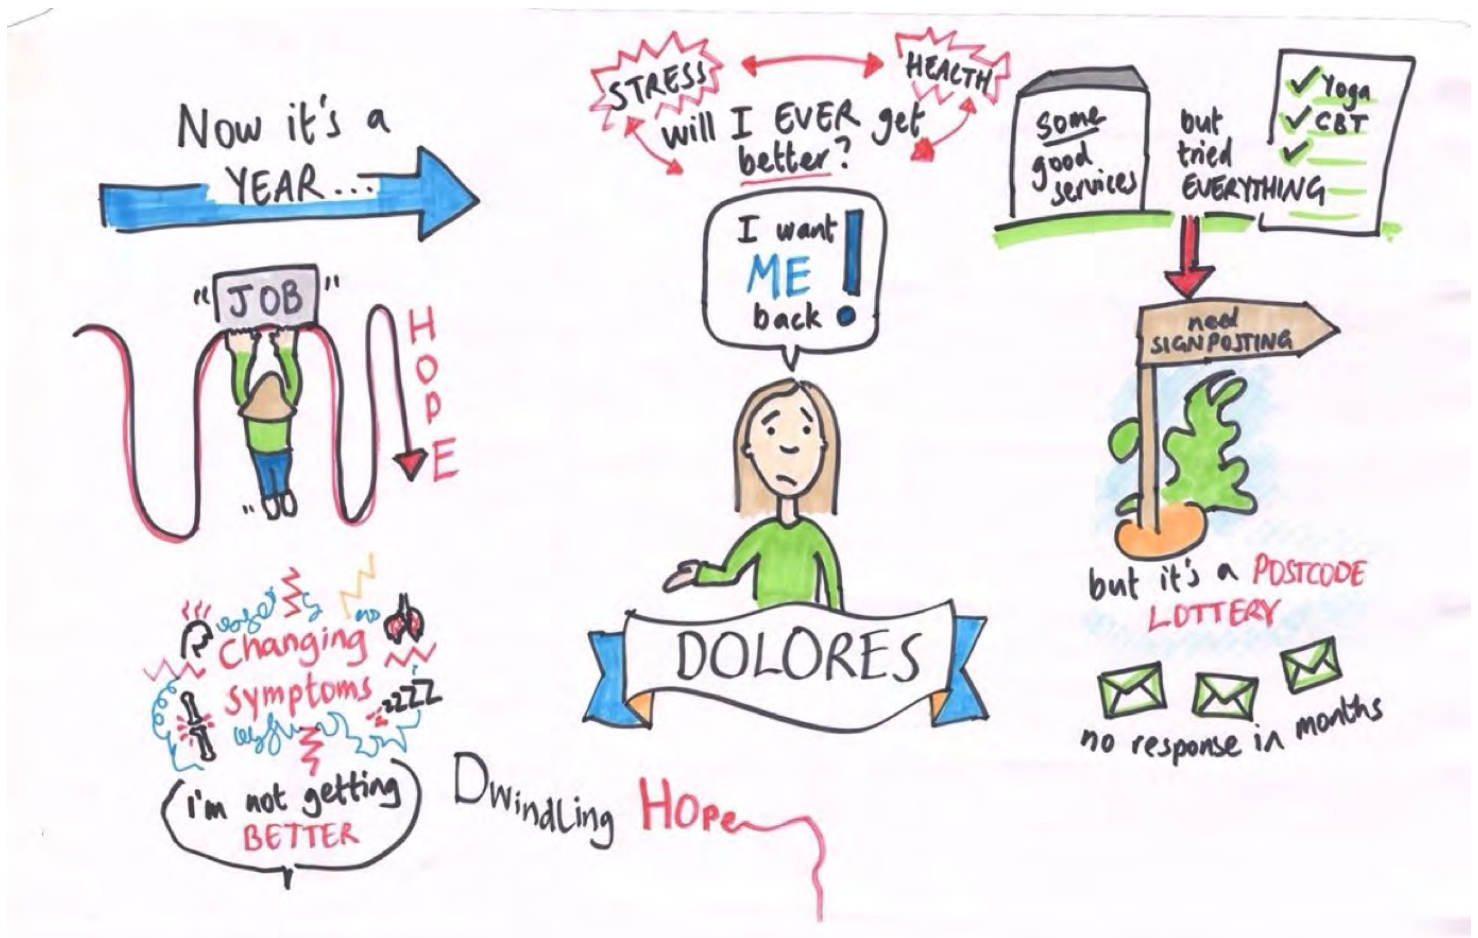 Now it's a
YEAR...
"JOB"
HOPE
changing
symptoms
zzZZZ
i'm not getting
BETTER
Dwindling Hope
STRESS
HEALTH
will I EVER get
better?
I want
ME
back
!
DOLORES
some
good
services
but
tried
EVERYTHING
Yoga
CBT
need
SIGNPOSTING
but it's a POSTCODE
LOTTERY
no response in months